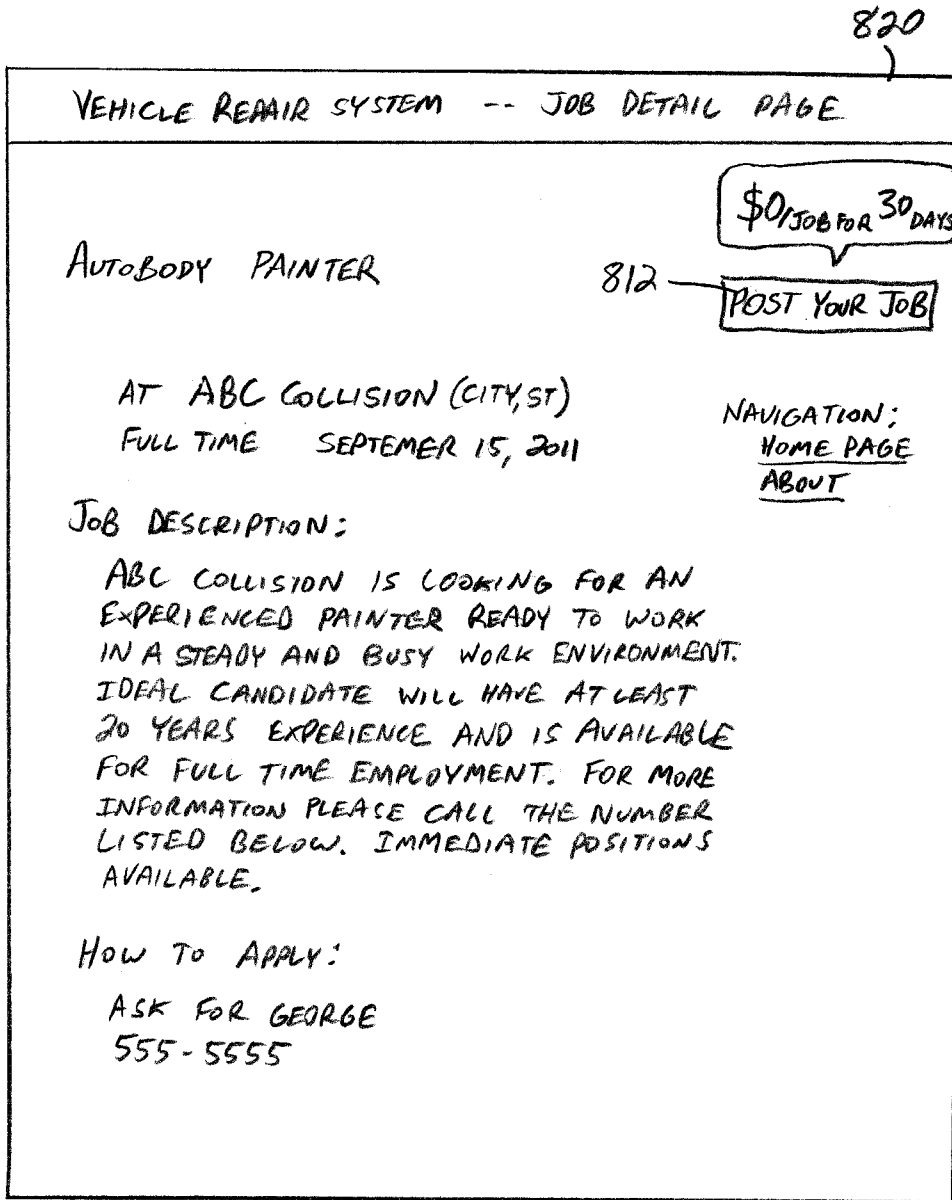 820
VEHICLE REPAIR SYSTEM -- JOB DETAIL PAGE
$0/JOB FOR 30 DAYS
AUTOBODY PAINTER
812
POST YOUR JOB
AT ABC COLLISION (CITY, ST)
FULL TIME SEPTEMER 15, 2011
NAVIGATION:
HOME PAGE
ABOUT
JOB DESCRIPTION:
ABC COLLISION IS LOOKING FOR AN
EXPERIENCED PAINTER READY TO WORK
IN A STEADY AND BUSY WORK ENVIRONMENT.
IDEAL CANDIDATE WILL HAVE AT LEAST
20 YEARS EXPERIENCE AND IS AVAILABLE
FOR FULL TIME EMPLOYMENT. FOR MORE
INFORMATION PLEASE CALL THE NUMBER
LISTED BELOW. IMMEDIATE POSITIONS
AVAILABLE.
HOW TO APPLY:
ASK FOR GEORGE
555-5555